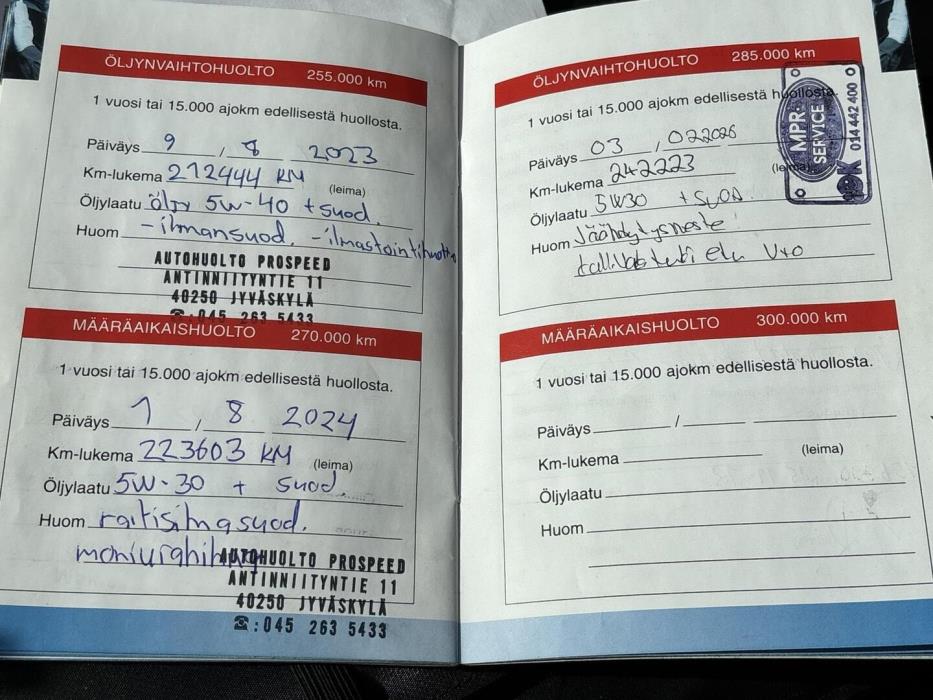 ÖLJYNVAIHTOHUOLTO 255.000 km
1 vuosi tai 15.000 ajokm edellisestä huollosta.
Päiväys 9 / 8 2023
Km-lukema 212444 KM (leima)
Öljylaatu öljy 5W-40 + suod.
Huom -ilmansuod. -ilmastointihuolto
AUTOHUOLTO PROSPEED
ANTINNIITYNTIE 11
40250 JYVÄSKYLÄ
☎:045 263 5433
MÄÄRÄAIKAISHUOLTO 270.000 km
1 vuosi tai 15.000 ajokm edellisestä huollosta.
Päiväys 1 / 8 2024
Km-lukema 223603 KM (leima)
Öljylaatu 5W-30 + suod.
Huom raitisilmasuod.
moniurahihna
AUTOHUOLTO PROSPEED
ANTINNIITYNTIE 11
40250 JYVÄSKYLÄ
☎:045 263 5433
ÖLJYNVAIHTOHUOLTO 285.000 km
1 vuosi tai 15.000 ajokm edellisestä huollosta.
Päiväys 03 / 022026
Km-lukema 242223 (leima)
Öljylaatu 5W30 + SuOD.
Huom Jäähdytysneste
tallivastuksi etu V+O
MPR-SERVICE
014 442 400
MÄÄRÄAIKAISHUOLTO 300.000 km
1 vuosi tai 15.000 ajokm edellisestä huollosta.
Päiväys / 
Km-lukema (leima)
Öljylaatu
Huom